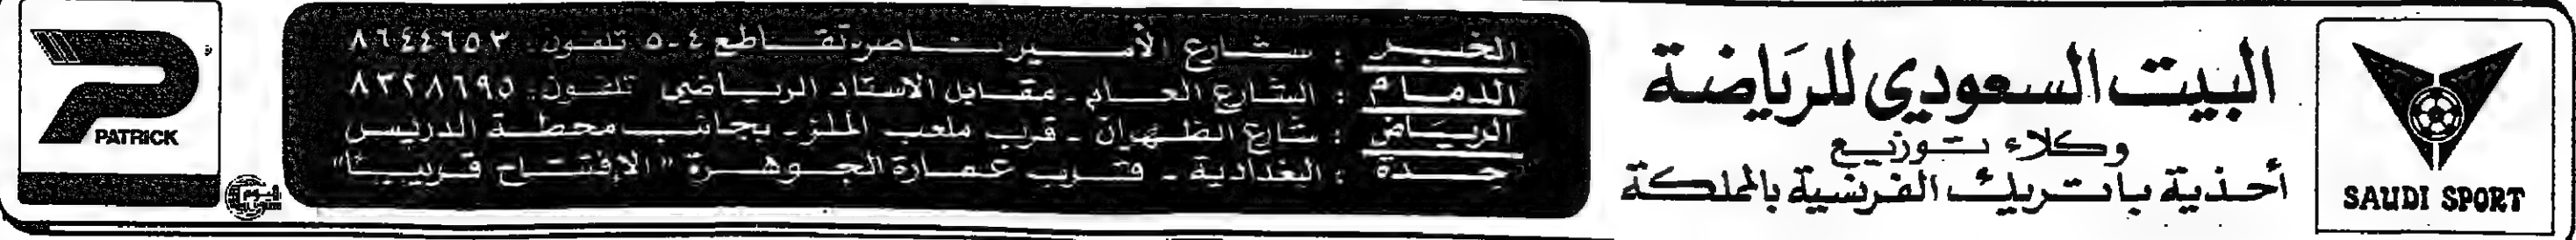 SAUDI SPORT
البيت السعودى للرياضة
وكلاء توزيع
أحذية باتريك الفرنسية بالمملكة
الخبر : شارع الأمير ناصر تقاطع ٤-٥ تلفون: ٨٦٤٤٦٥٣
الدمام : الشارع العام - مقابل الاستاد الرياضى تلفون: ٨٣٢٨٦٩٥
الرياض : شارع الظهران - قرب ملعب الملز - بجانب محطة الدريس
جدة : البغدادية - قرب عمارة الجوهرة "الإفتتاح قريبًا"
PATRICK